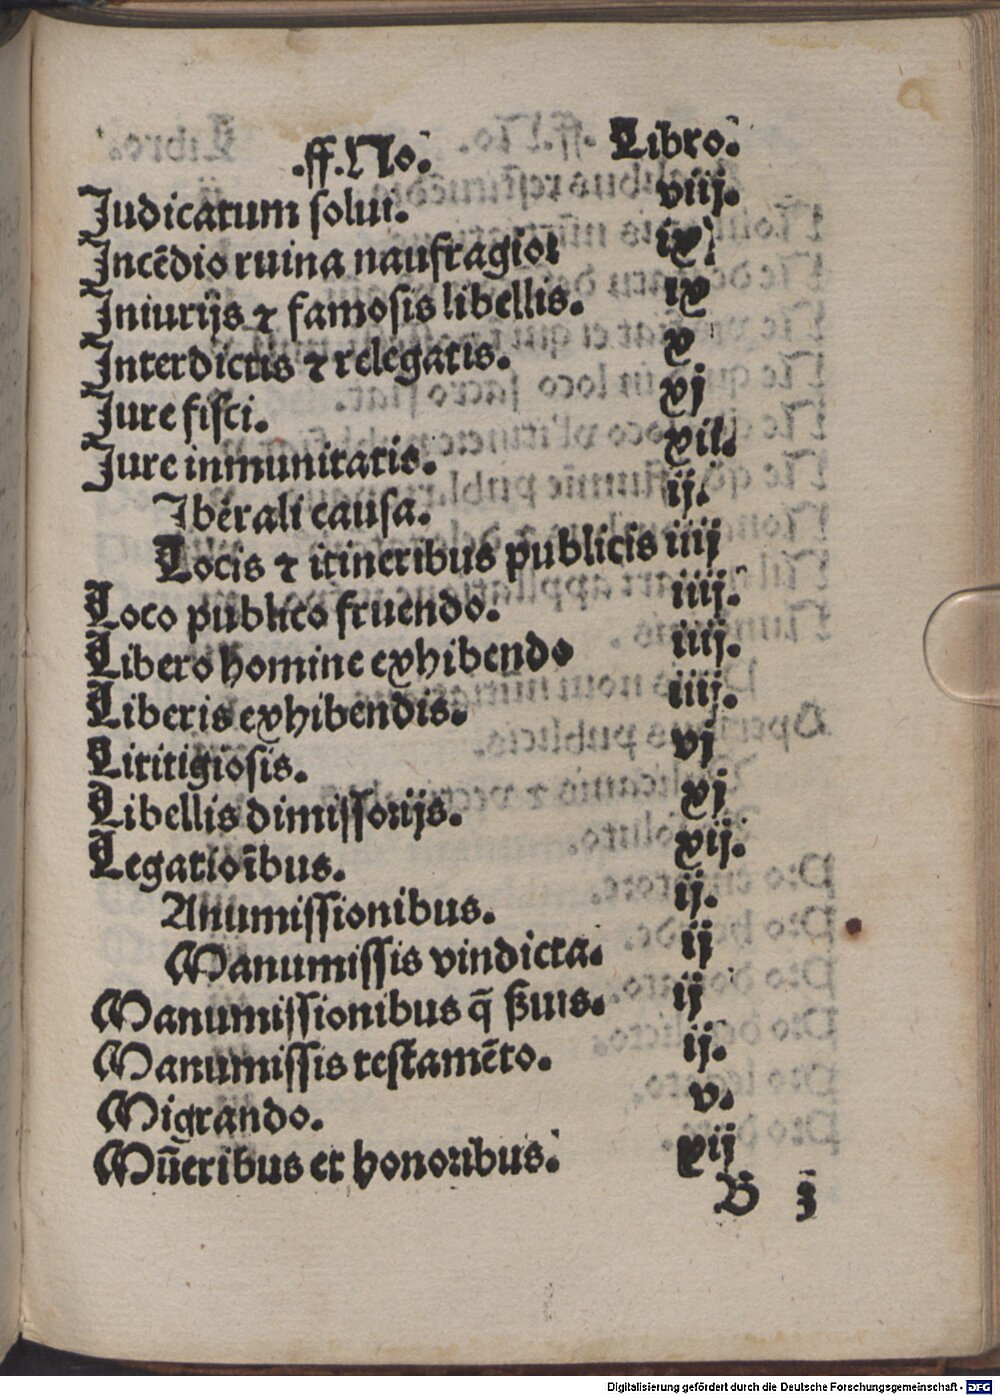 .ff.No. Libro.
Judicatum solui. viij.
Incēdio ruina naufragio: ix.
Iniurijs ⁊ famosis libellis. ix
Interdictis ⁊ relegatis. x
Jure fisci. xj
Jure inmunitatis. xij.
Iberali causa. ij.
Locis ⁊ itineribus publicis iiij
Loco publico fruendo. iiij.
Libero homine exhibendo iiij.
Liberis exhibendis. iiij.
Lititigiosis. vj
Libellis dimissorijs. xj
Legatiōibus. xij.
Anumissionibus. ij.
Manumissis vindicta. ij
Manumissionibus q̄ ẞuis. ij
Manumissis testamēto. ij.
Migrando. v.
Mūeribus et honoribus. xij
B 3
Digitalisierung gefördert durch die Deutsche Forschungsgemeinschaft - DFG